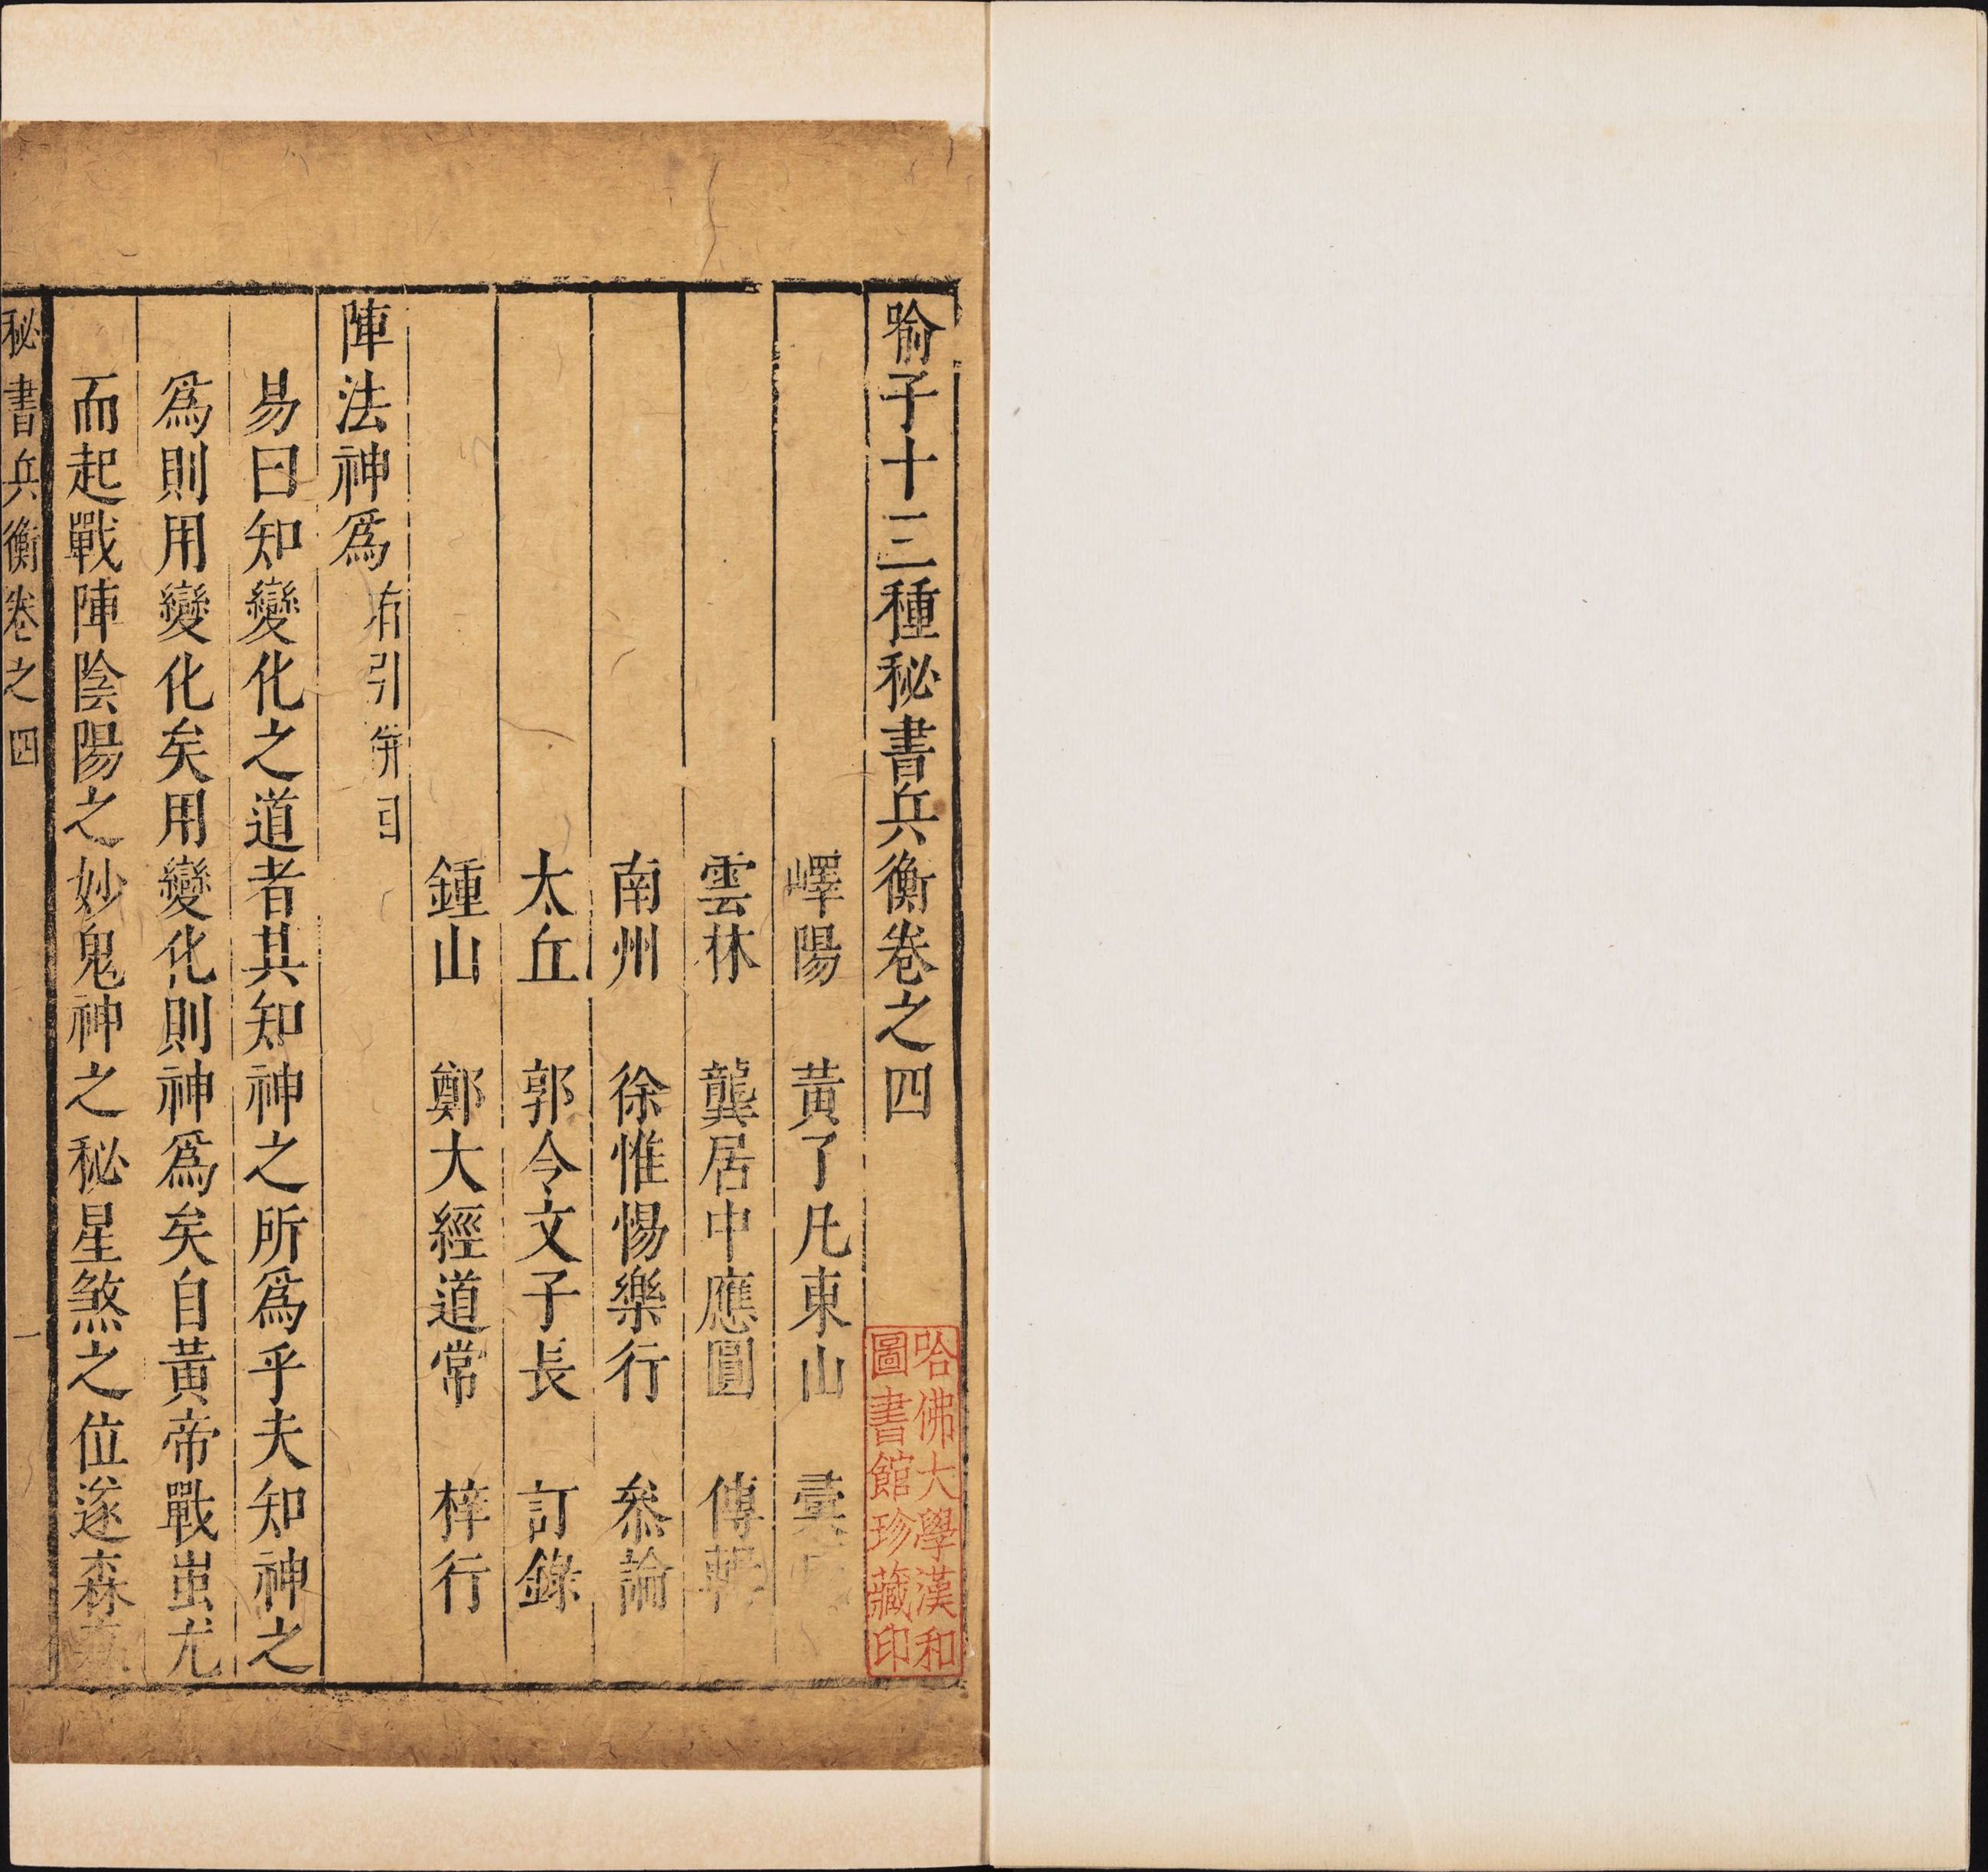 喻子十三種秘書兵衡卷之四
嶧陽 黃了凡東山 彙
雲林 龔居中應圓 傳
南州 徐惟惕樂行 叅論
太丘 郭令文子長 訂錄
鍾山 鄭大經道常 梓行
陣法神爲 有引併目
易曰知變化之道者其知神之所爲乎夫知神之
爲則用變化矣用變化則神爲矣自黃帝戰蚩尤
而起戰陣陰陽之妙鬼神之秘星煞之位遂森
秘書兵衡卷之四 一
哈佛大學漢和
圖書館珍藏印